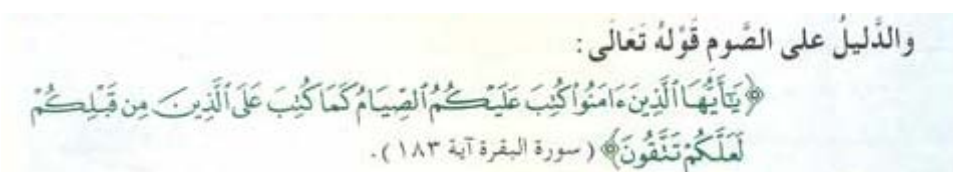 والدَّليلُ على الصَّوم قَوْلهُ تَعَالَى:
﴿يَٰٓأَيُّهَا ٱلَّذِينَ ءَامَنُوا۟ كُتِبَ عَلَيْكُمُ ٱلصِّيَامُ كَمَا كُتِبَ عَلَى ٱلَّذِينَ مِن قَبْلِكُمْ
لَعَلَّكُمْ تَتَّقُونَ﴾ (سورة البقرة آية ١٨٣).